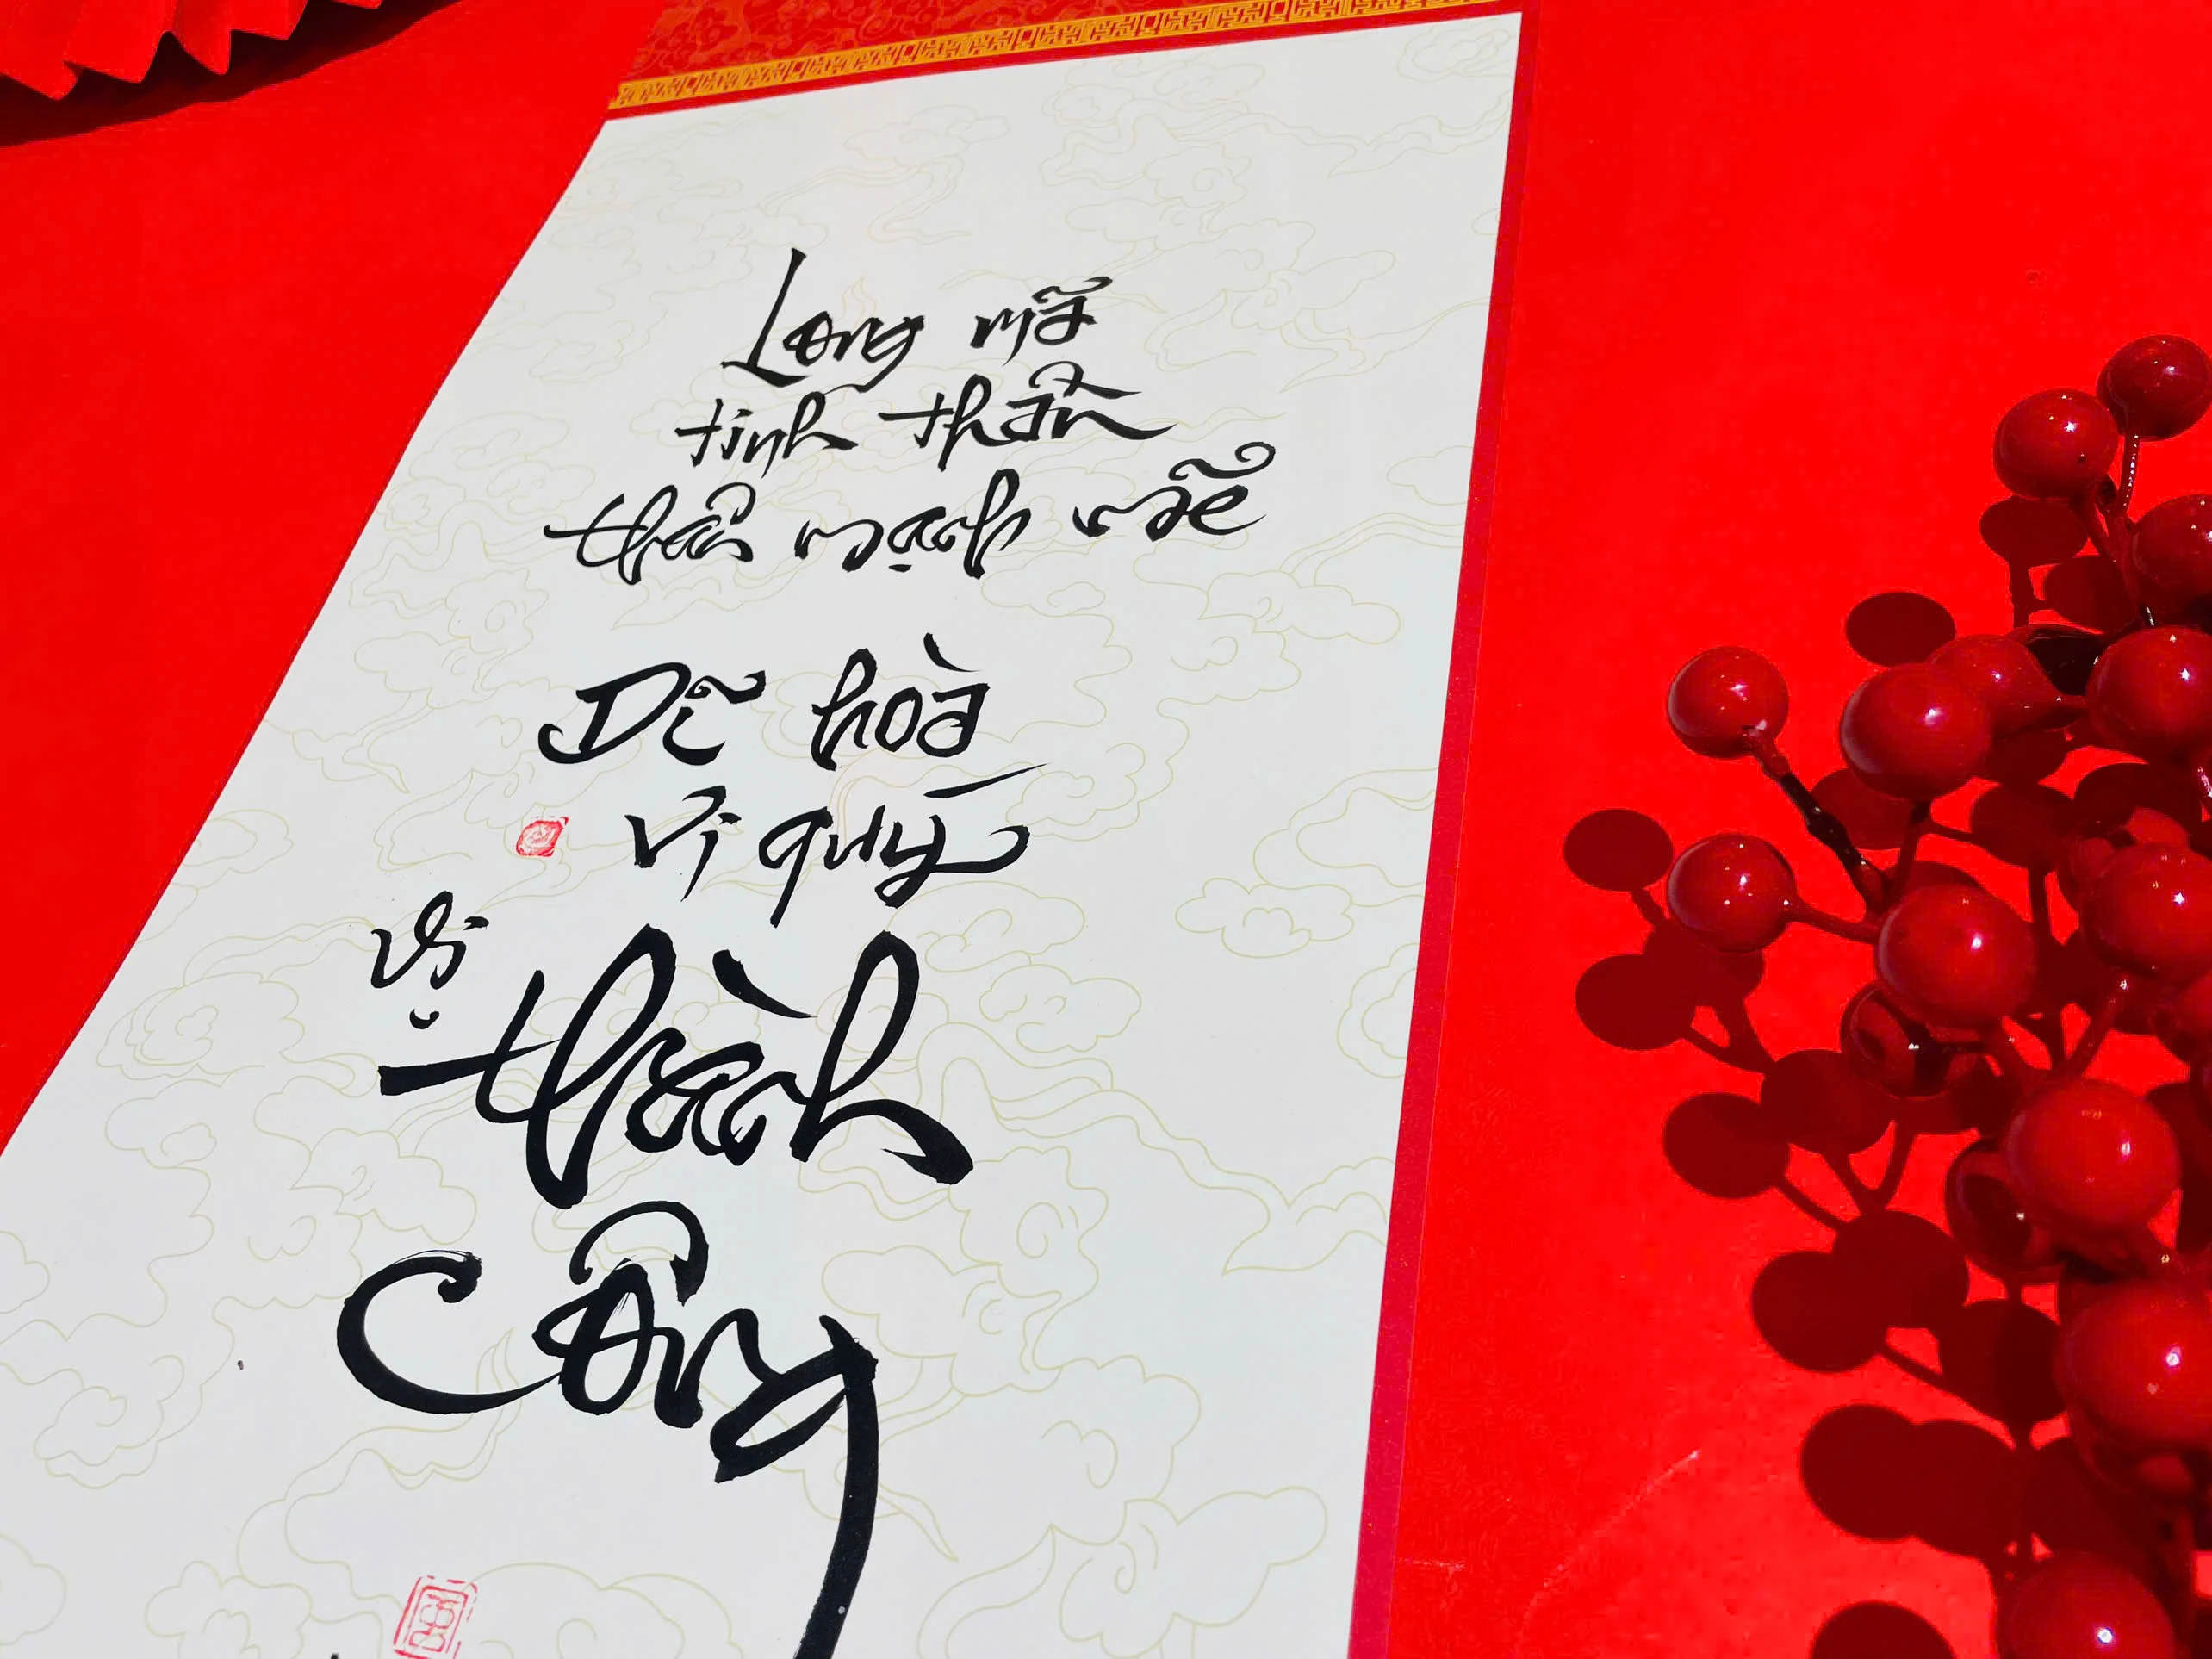 Long mã
tinh thần
thân mạnh mẽ
Dĩ hoà
vi quý
vị
thành
công